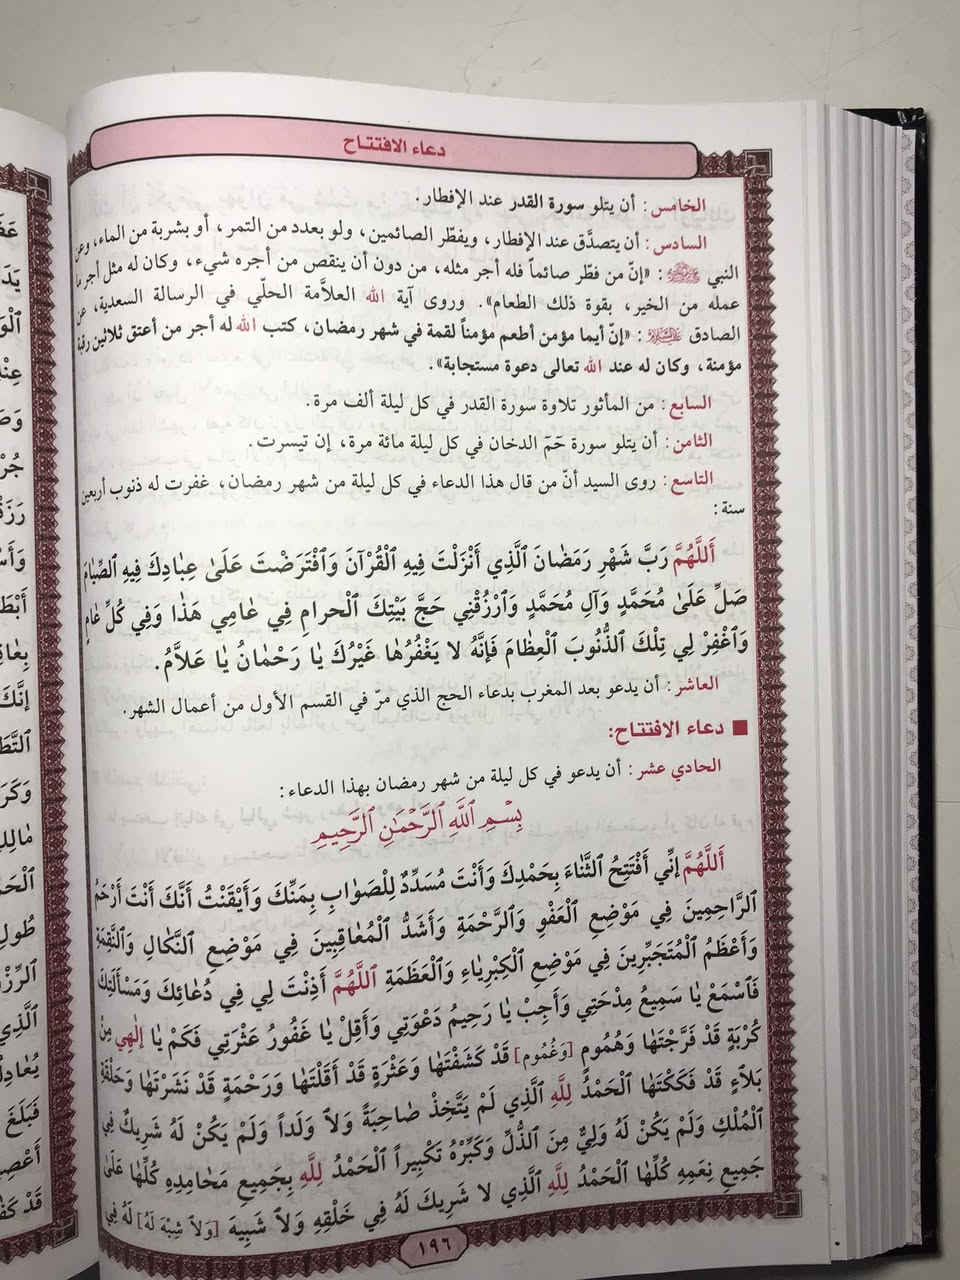 دعاء الافتتاح
الخامس: أن يتلو سورة القدر عند الإفطار.
السادس: أن يتصدَّق عند الإفطار، ويفطّر الصائمين، ولو بعدد من التمر، أو بشربة من الماء، وعن
النبي ﷺ: «إنّ من فطّر صائماً فله أجر مثله، من دون أن ينقص من أجره شيء، وكان له مثل أجر ما
عمله من الخير، بقوة ذلك الطعام». وروى آية الله العلاَّمة الحلّي في الرسالة السعدية، عن
الصادق عليه السلام: «إنّ أيما مؤمن أطعم مؤمناً لقمة في شهر رمضان، كتب الله له أجر من أعتق ثلاثين رقبة
مؤمنة، وكان له عند الله تعالى دعوة مستجابة».
السابع: من المأثور تلاوة سورة القدر في كل ليلة ألف مرة.
الثامن: أن يتلو سورة حَمَ الدخان في كل ليلة مائة مرة، إن تيسرت.
التاسع: روى السيد أنّ من قال هذا الدعاء في كل ليلة من شهر رمضان، غفرت له ذنوب أربعين
سنة:
أَللَّهُمَّ رَبَّ شَهْرِ رَمَضٰانَ ٱلَّذِي أَنْزَلْتَ فِيهِ ٱلْقُرْآنَ وَٱفْتَرَضْتَ عَلَىٰ عِبٰادِكَ فِيهِ ٱلصِّيٰامَ
صَلِّ عَلَىٰ مُحَمَّدٍ وَآلِ مُحَمَّدٍ وَٱرْزُقْنِي حَجَّ بَيْتِكَ ٱلْحَرامِ فِي عٰامِي هَذٰا وَفِي كُلِّ عٰامٍ
وَٱغْفِرْ لِي تِلْكَ ٱلذُّنُوبَ ٱلْعِظٰامَ فَإِنَّهُ لا يَغْفِرُهٰا غَيْرُكَ يٰا رَحْمٰانُ يٰا عَلاَّمُ.
العاشر: أن يدعو بعد المغرب بدعاء الحج الذي مرّ في القسم الأول من أعمال الشهر.
■ دعاء الافتتاح:
الحادي عشر: أن يدعو في كل ليلة من شهر رمضان بهذا الدعاء:
بِسْمِ ٱللَّهِ ٱلرَّحْمَٰنِ ٱلرَّحِيمِ
أَللَّهُمَّ إِنِّي أَفْتَتِحُ ٱلثَّنٰاءَ بِحَمْدِكَ وَأَنْتَ مُسَدِّدٌ لِلْصَوٰابِ بِمَنِّكَ وَأَيْقَنْتُ أَنَّكَ أَنْتَ أَرْحَمُ
ٱلرَّاحِمِينَ فِي مَوْضِعِ ٱلْعَفْوِ وَٱلرَّحْمَةِ وَأَشَدُّ ٱلْمُعٰاقِبِينَ فِي مَوْضِعِ ٱلنَّكٰالِ وَٱلنَّقِمَةِ
وَأَعْظَمُ ٱلْمُتَجَبِّرِينَ فِي مَوْضِعِ ٱلْكِبْرِيٰاءِ وَٱلْعَظَمَةِ ٱللَّهُمَّ أَذِنْتَ لِي فِي دُعٰائِكَ وَمَسْأَلَتِكَ
فَٱسْمَعْ يٰا سَمِيعُ مِدْحَتِي وَأَجِبْ يٰا رَحِيمُ دَعْوَتِي وَأَقِلْ يٰا غَفُورُ عَثْرَتِي فَكَمْ يٰا إِلٰهِي مِنْ
كُرْبَةٍ قَدْ فَرَّجْتَهٰا وَهُمُومٍ [وَغُمُومٍ] قَدْ كَشَفْتَهٰا وَعَثْرَةٍ قَدْ أَقَلْتَهٰا وَرَحْمَةٍ قَدْ نَشَرْتَهٰا وَحَلْقَةِ
بَلاٰءٍ قَدْ فَكَكْتَهٰا ٱلْحَمْدُ لِلَّهِ ٱلَّذِي لَمْ يَتَّخِذْ صٰاحِبَةً وَلاٰ وَلَداً وَلَمْ يَكُنْ لَهُ شَرِيكٌ فِي
ٱلْمُلْكِ وَلَمْ يَكُنْ لَهُ وَلِيٌّ مِنَ ٱلذُّلِّ وَكَبِّرْهُ تَكْبِيراً ٱلْحَمْدُ لِلَّهِ بِجَمِيعِ مَحٰامِدِهِ كُلِّهٰا عَلَىٰ
جَمِيعِ نِعَمِهِ كُلِّهٰا ٱلْحَمْدُ لِلَّهِ ٱلَّذِي لا شَرِيكَ لَهُ فِي خَلْقِهِ وَلاٰ شَبِيهَ [وَلاٰ شِبْهَ لَهُ] لَهُ فِي
١٩٦